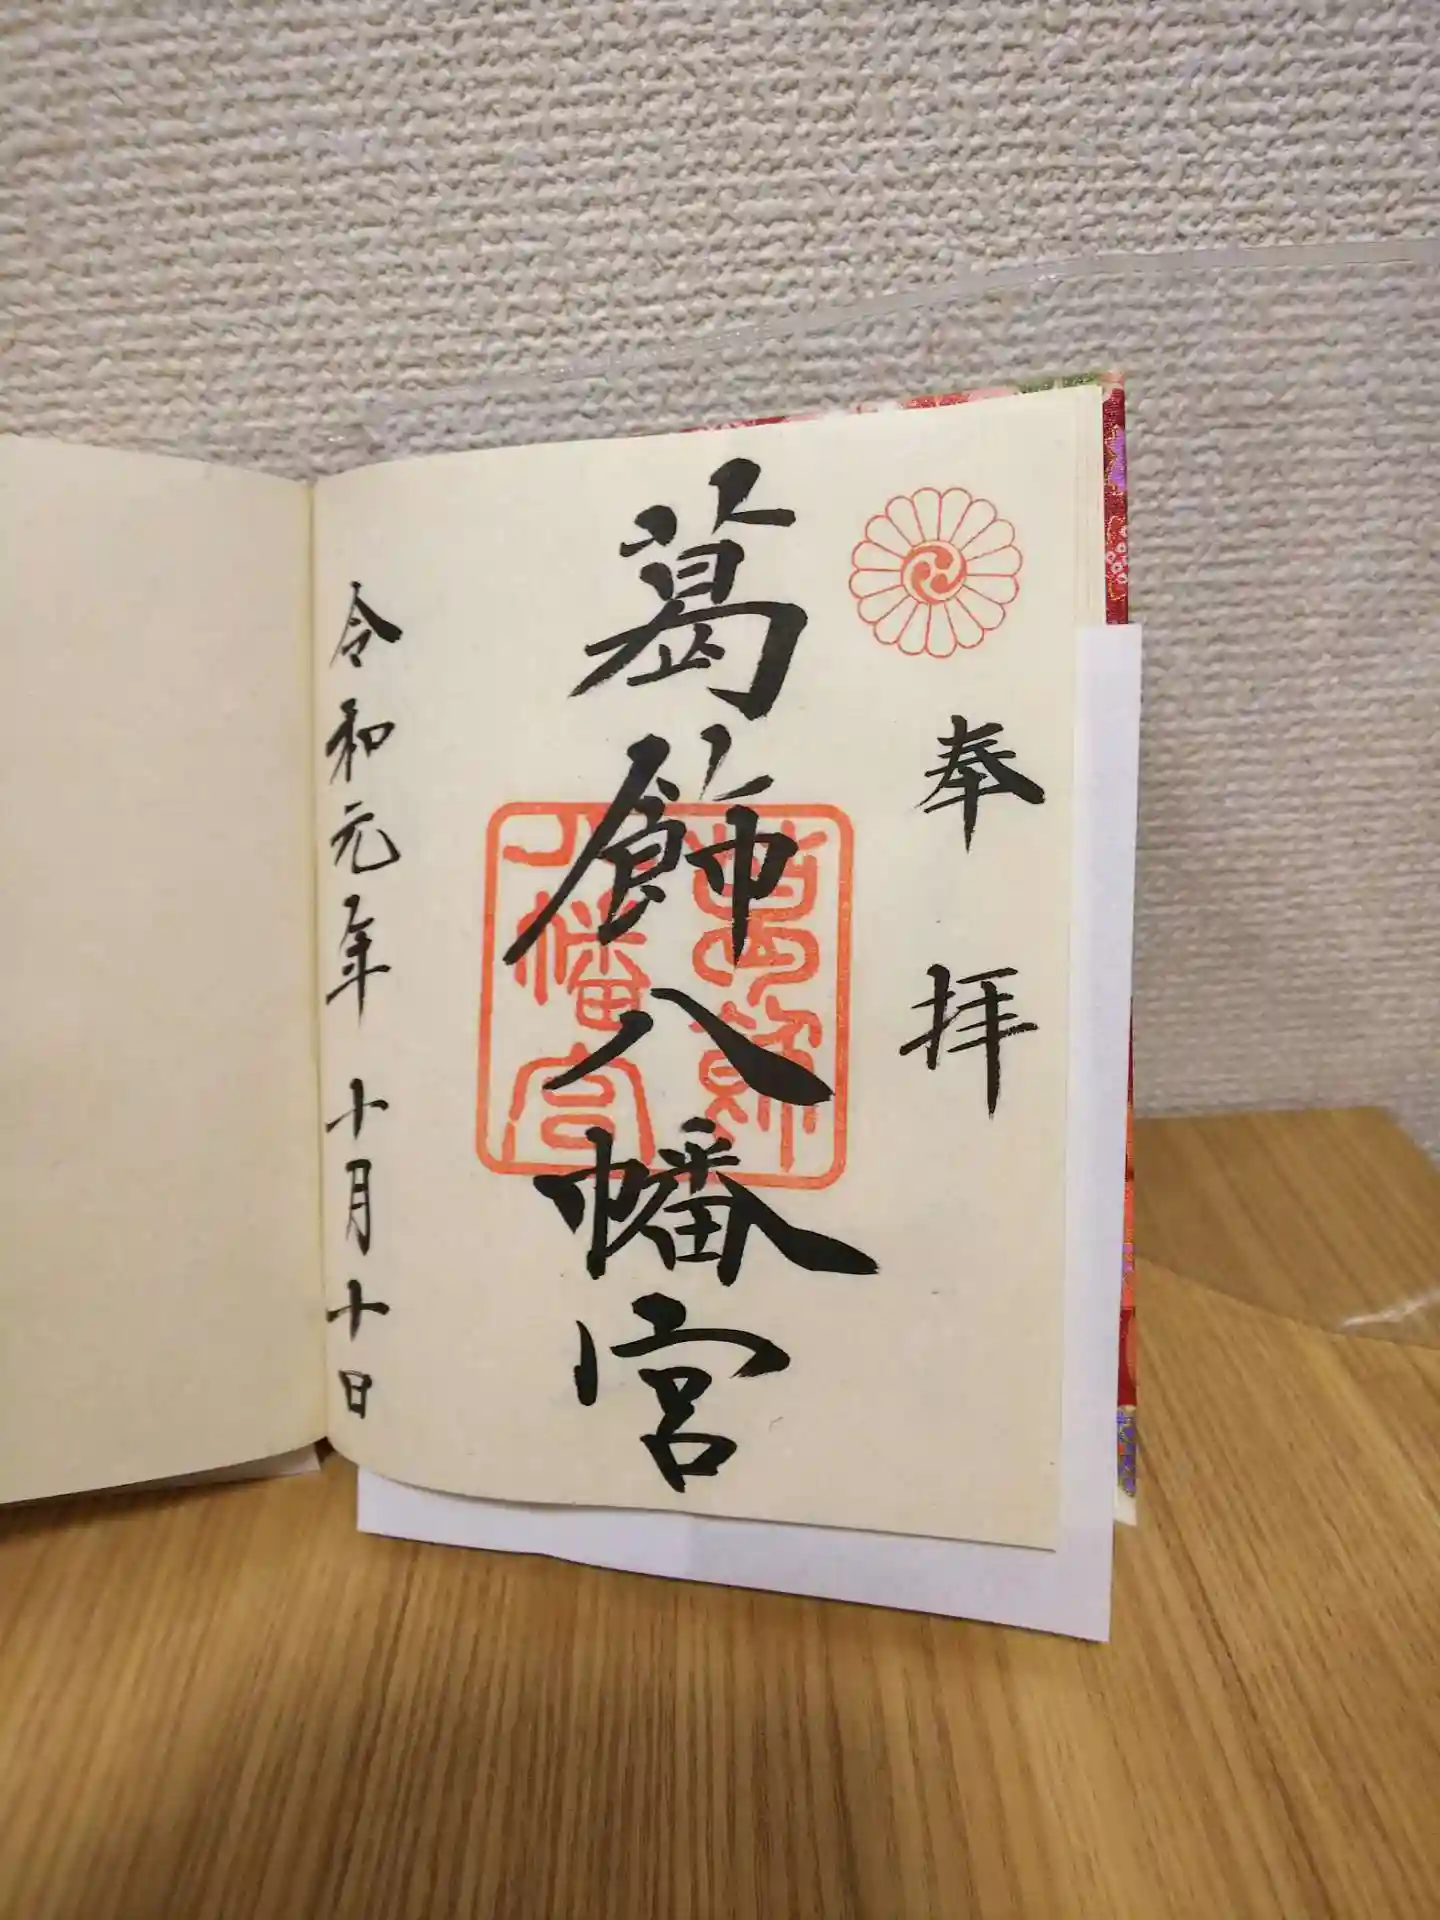 奉拝
葛飾八幡宮
葛飾
八幡宮
令和元年 十月十日